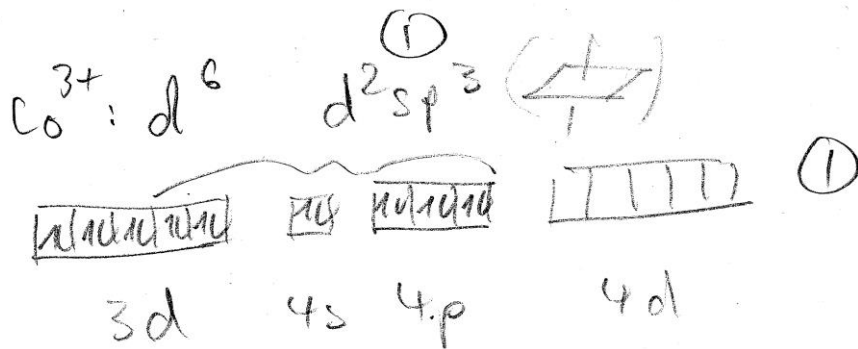 ①
Co³⁺: d⁶ d²sp³
①
3d 4s 4p 4d